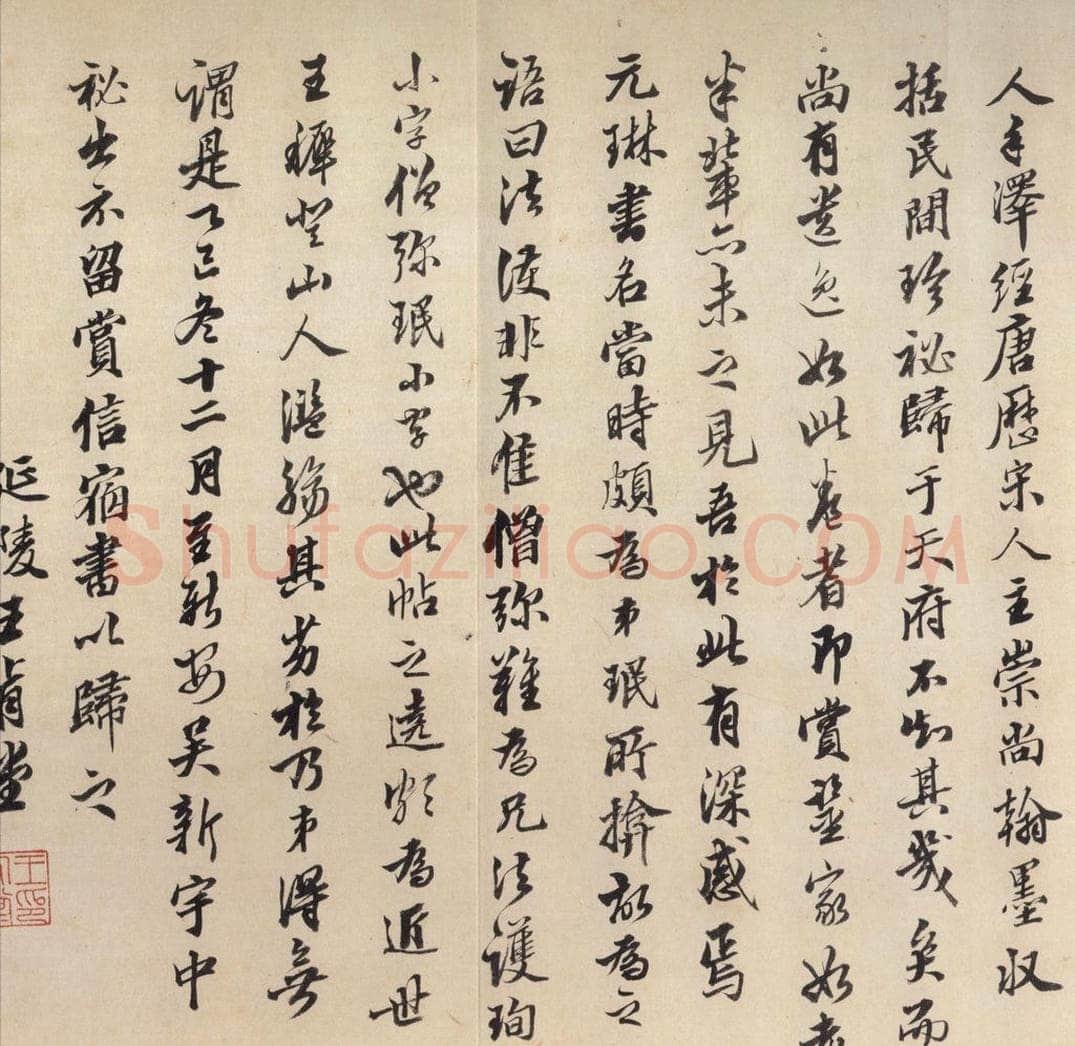 人手澤經唐歷宋人主崇尚翰墨收
括民間珍祕歸于天府不知其幾矣而
尚有遺逸如此卷者即賞鑒家如老
米輩亦未之見吾於此有深感焉
元琳書名當時頗為弟珉所揜故為之
語曰法護非不佳僧彌難為兄法護珣
小字僧彌珉小字也此帖之遶為近世
王穉登山人濫觴其劣於乃弟得無
謂是乙巳冬十二月至新安吳新宇中
祕出示留賞信宿書以歸之
延陵王肯堂
Shufaziliao.COM